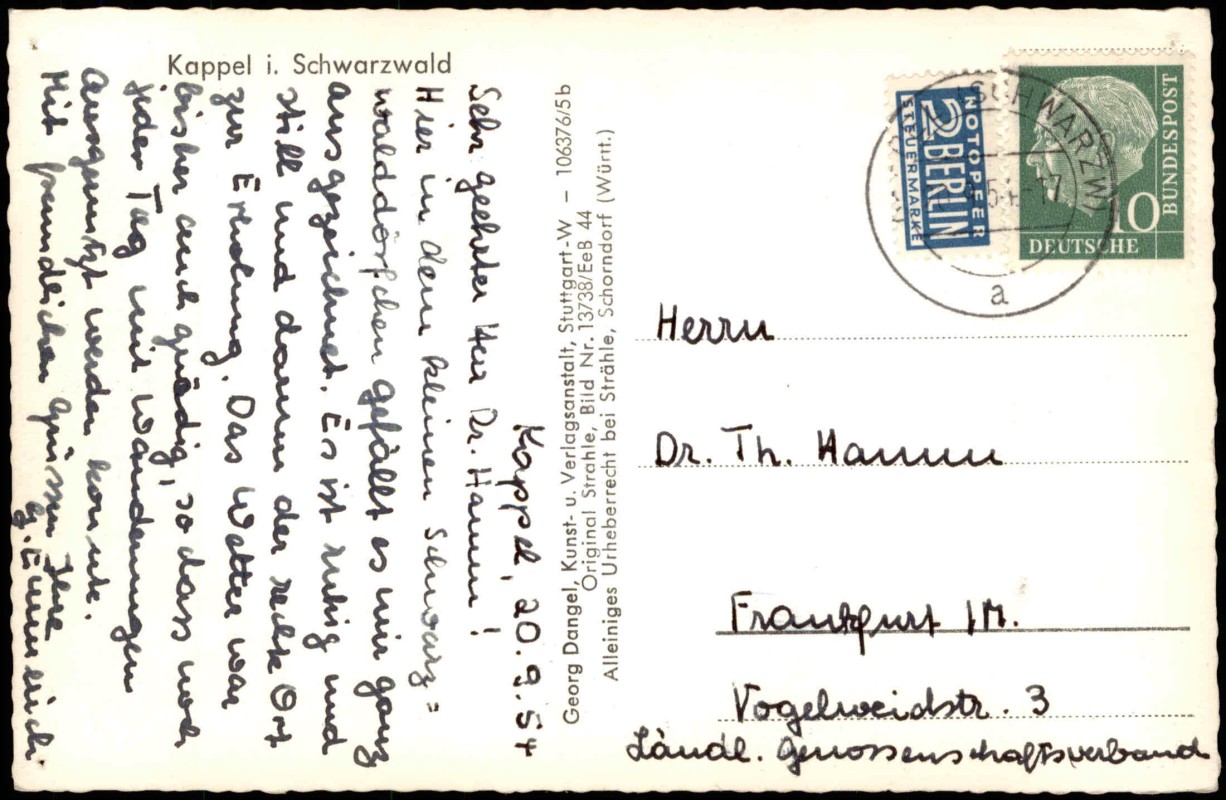 Kappel i. Schwarzwald
Kappel, 20.9.54
Sehr geehrter Herr Dr. Hamm!
Hier in dem kleinen Schwarz=
walddörfchen gefällt es mir ganz
ausgezeichnet. Es ist ruhig und
still und darum der rechte Ort
zur Erholung. Das Wetter war
bisher auch gnädig, so dass noch
jeder Tag mit Wanderungen
ausgenutzt werden konnte.
Mit freundlichen Grüssen Ihre
Emmerich.
Georg Dangel, Kunst- u. Verlagsanstalt, Stuttgart-W – 106376/5b
Original Strähle, Bild Nr. 13738/EeB 44
Alleiniges Urheberrecht bei Strähle, Schorndorf (Württ.)
NOTOPFER
2 BERLIN
STEUERMARKE
DEUTSCHE
BUNDESPOST
10
(SCHWARZW)
a
Herrn
Dr. Th. Hamm
Frankfurt /M.
Vogelweidstr. 3
Ländl. Genossenschaftsverband